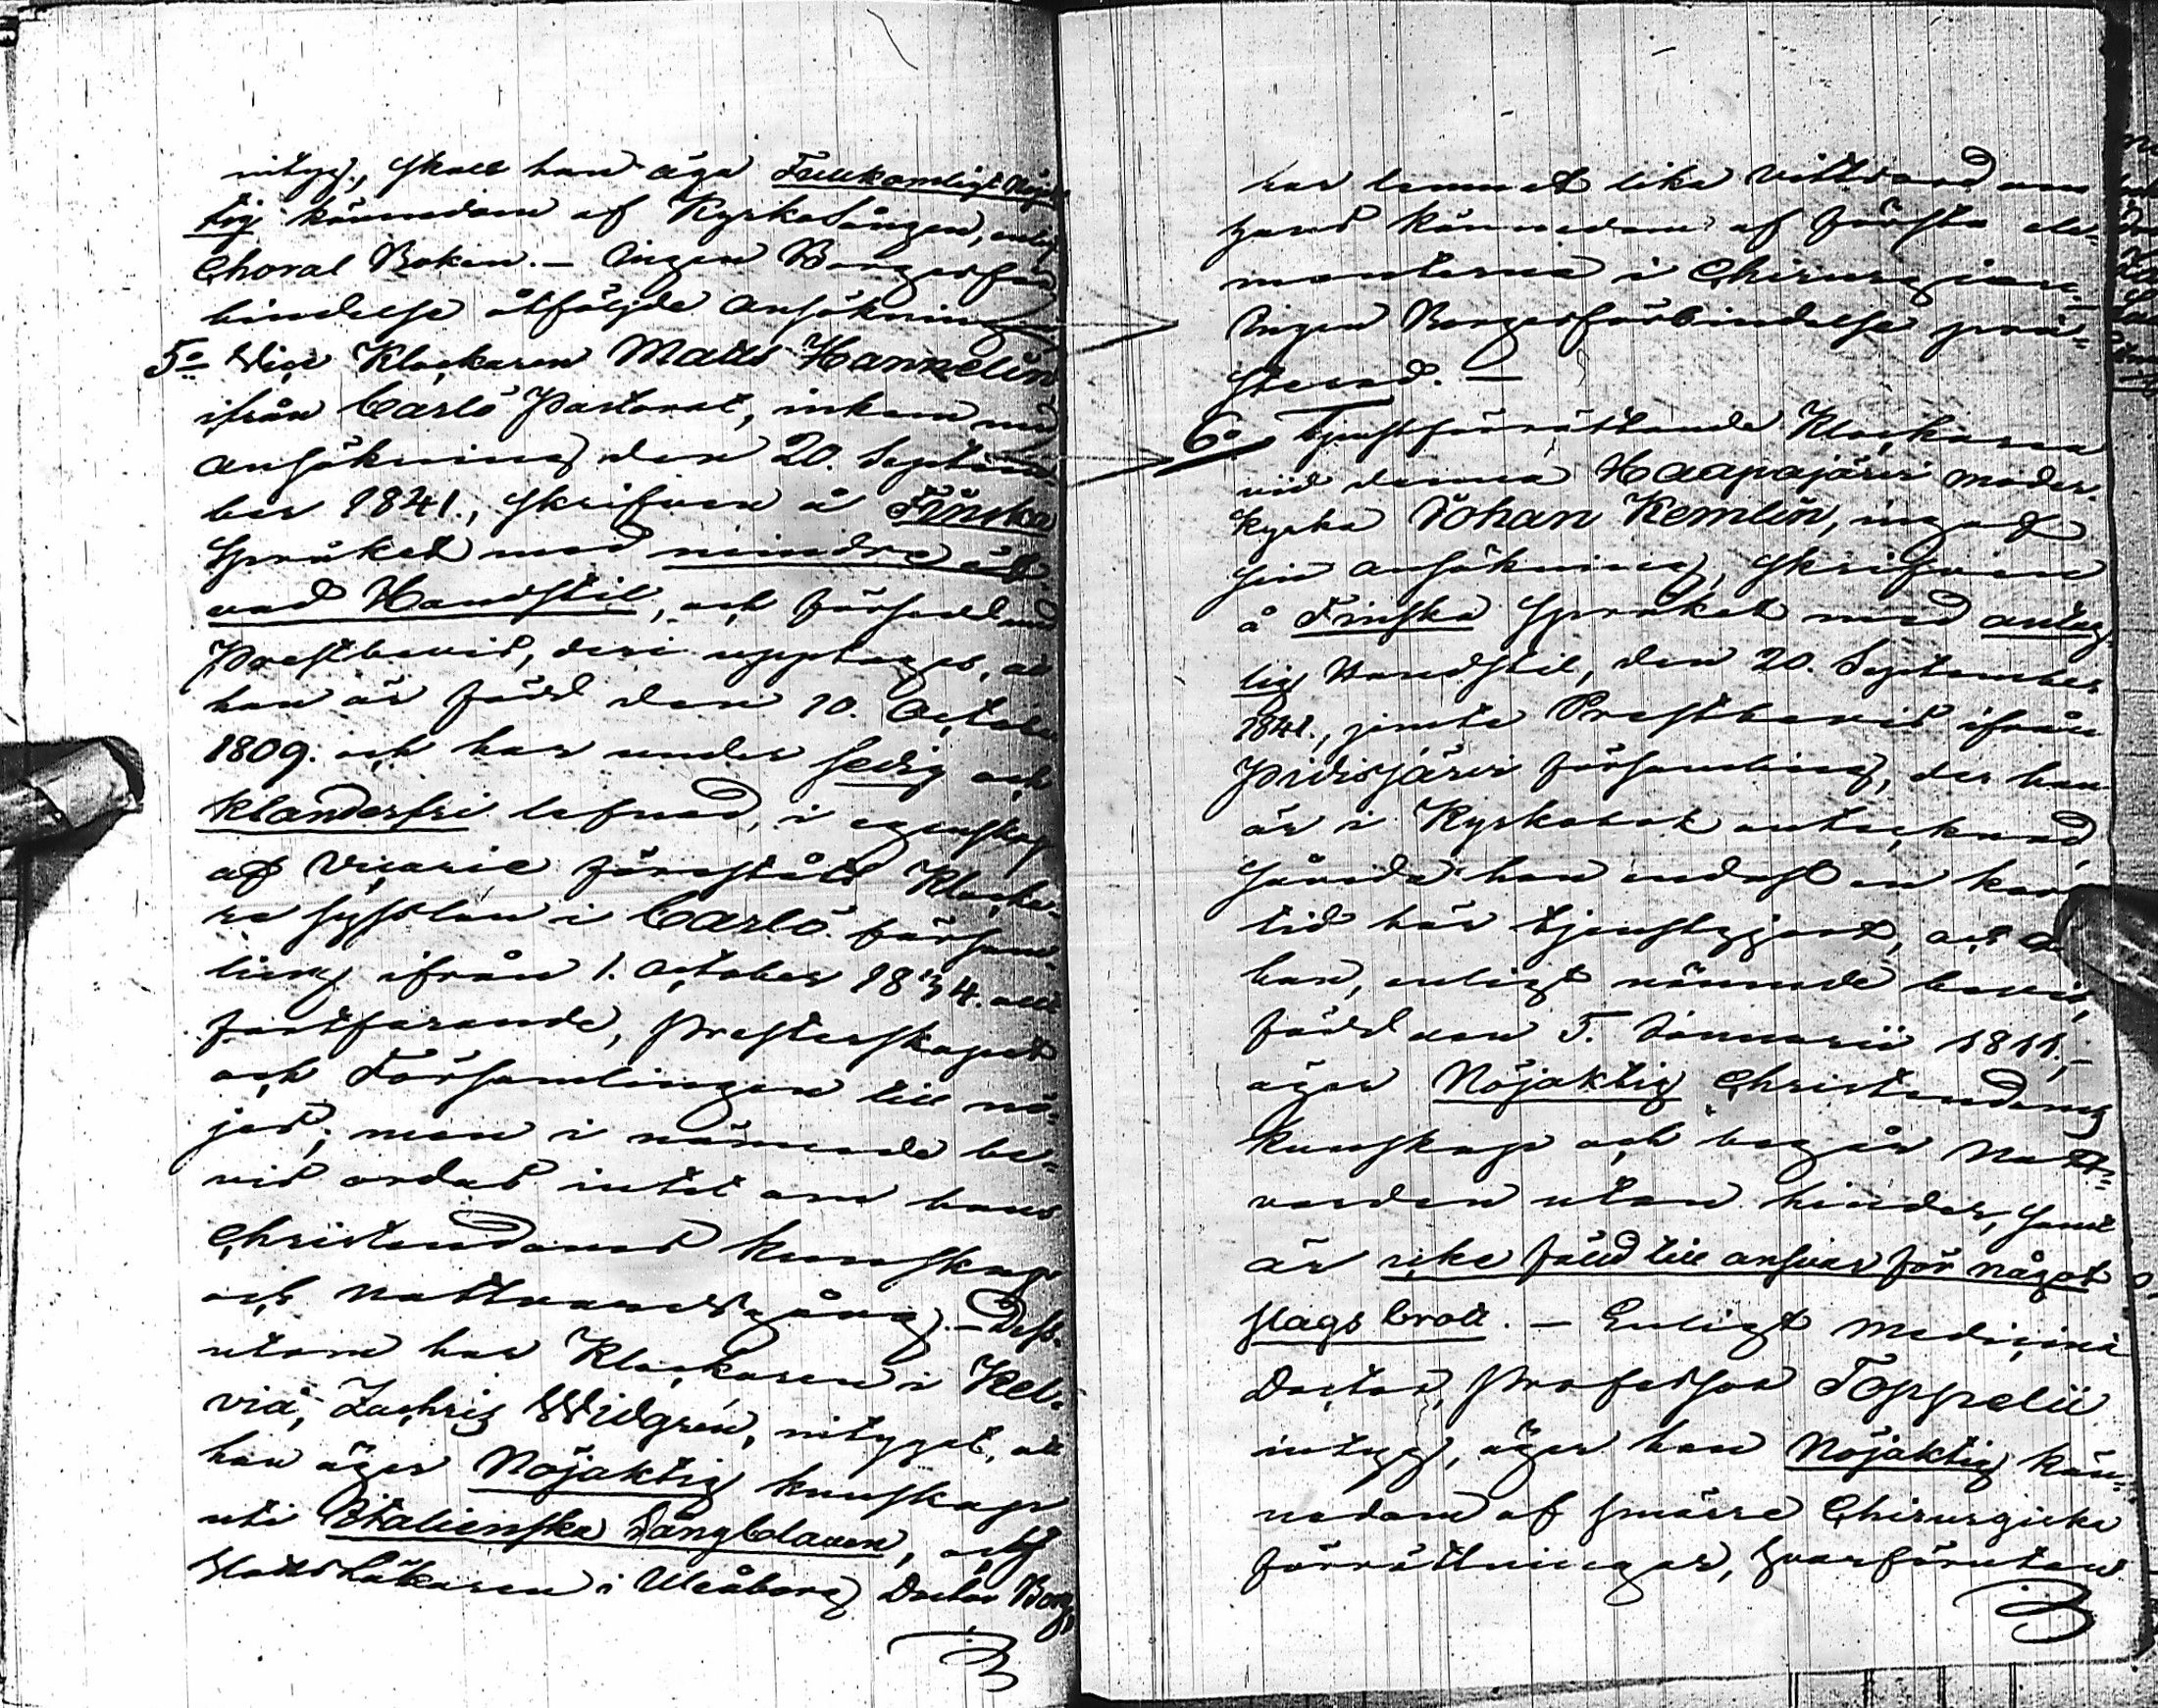 intyg, skall han äga Fullkomligt nöjak
tig kännedom af Kyrkosången, enligt
Choral Boken. — Ingen Borgesför
bindelse åtföljde ansökningen
5o Vice Klockaren Matts Hannelin
ifrån Carlö Pastorat, inkom med
ansökning den 20. Septem
ber 1841., skrifven å Finska
Språket med mindre öf
vad Handstil, och försedd med
Prestbevis, deri upptages, att
han är född den 10. October
1809. och har under sedig och
klanderfri lefnad, i egenskap
af Vicarie förestått Klocka-
re sysslan i Carlö försam-
ling ifrån 1. October 1834. allt
fortfarande, Presterskapet
och Församlingen till nö-
jes; men i nämnde be-
vis ordas intet om hans
Christendoms kunskap
och nattvardsgång. — Dess-
utom har Klockaren i Kel-
viå, Zachris Widgrén, intygat, att
han äger Nöjaktig kunskap
uti Italienska Sångclaven, och
StadsLäkaren i Uleåborg Doctor Borg,
har lemnat lika vittsord om
hans kännedom af första ele-
menterna i Chirurgien.-
Ingen Borgesförbindelse prä-
sterad. —
6o Tjenstförrättande Klockaren
vid denna Haapajärvi moder-
kyrka Johan Kemlin, ingaf
sin ansökning, skrifven
å Finska Språket med antag
lig Handstil, den 20. September
1841., jemte Prestbevis ifrån
Pidisjärvi församling, der han
är i Kyrkobok antecknad,
hända han endast en kort
tid här tjenstgjort, och är
han, enligt nämnde bevis,
född den 5. Januarii 1811,-
äger Nöjaktig Christendoms
kunskap och begår Natt-
varden utan hinder, samt
är icke fälld till ansvar för något
slags brott. — Enligt Medicine
Doctor, Professor Toppelii
intyg, äger han Nöjaktig kän-
nedom af smärre Chirurgiska
förrättningar, hvarförutan